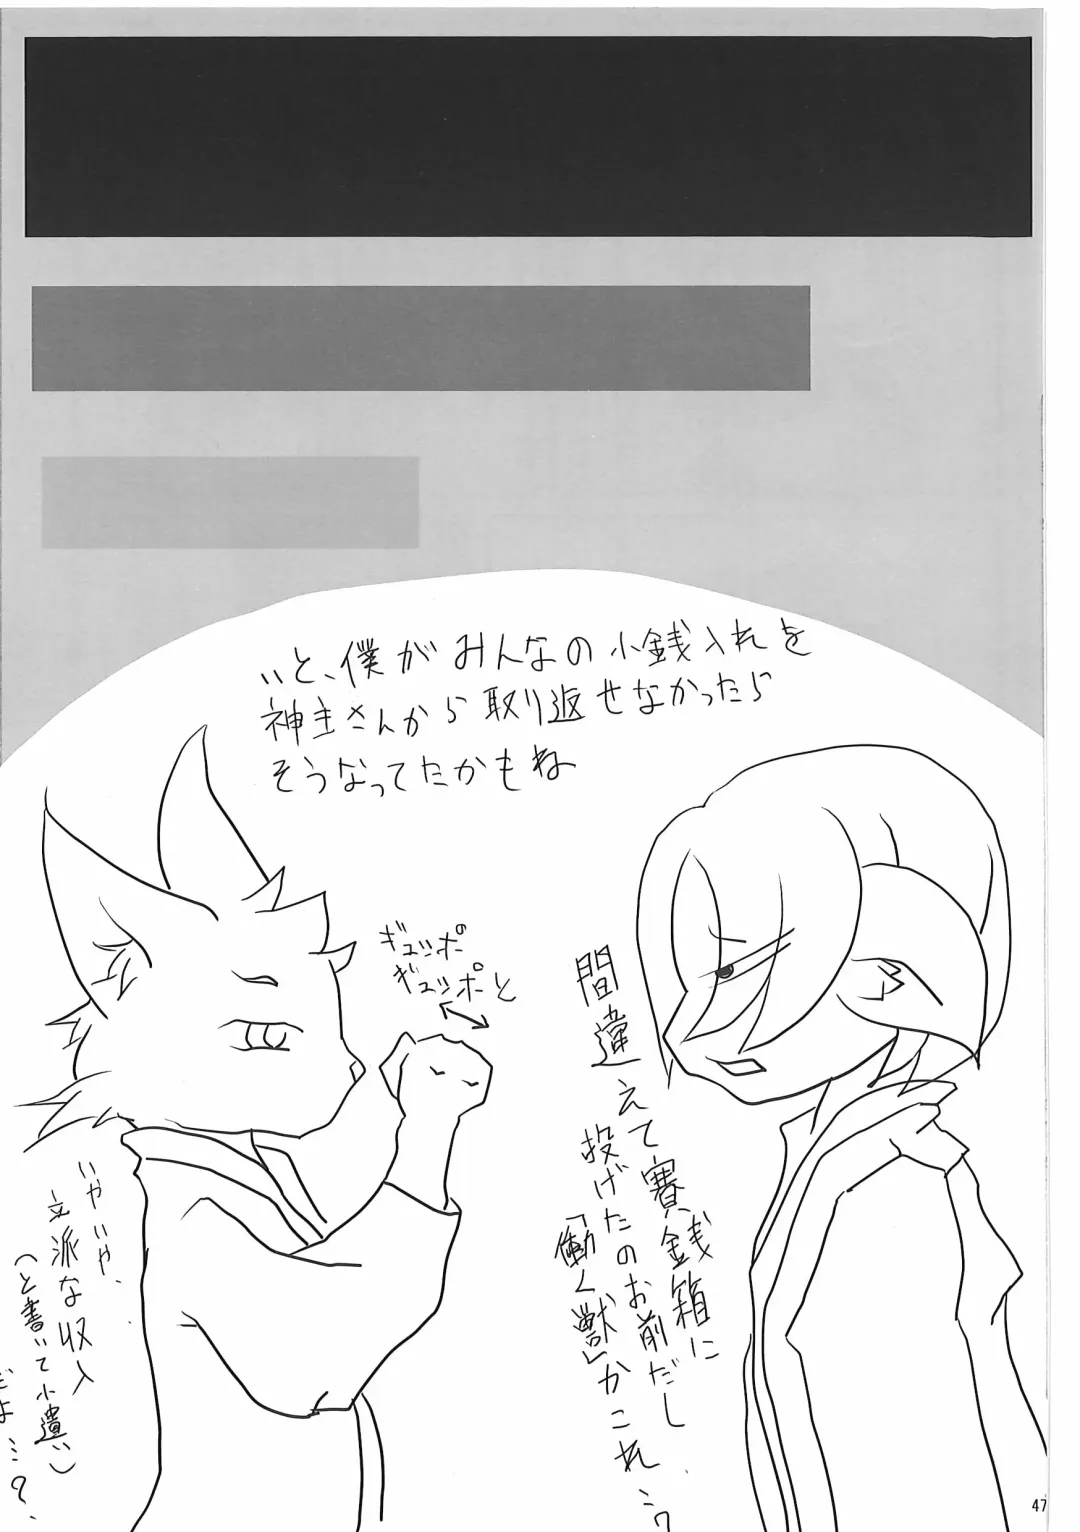 いと、僕がみんなの小銭入れを
神主さんから取り返せなかったら
そうなってたかもね
ギュッポの
ギュッポと
間違えて賽銭箱に
投げたのお前だし
「働く獣」かこれ…?
いやいや、
立派な収入
(と書いて小遣い)
だよ…?
47